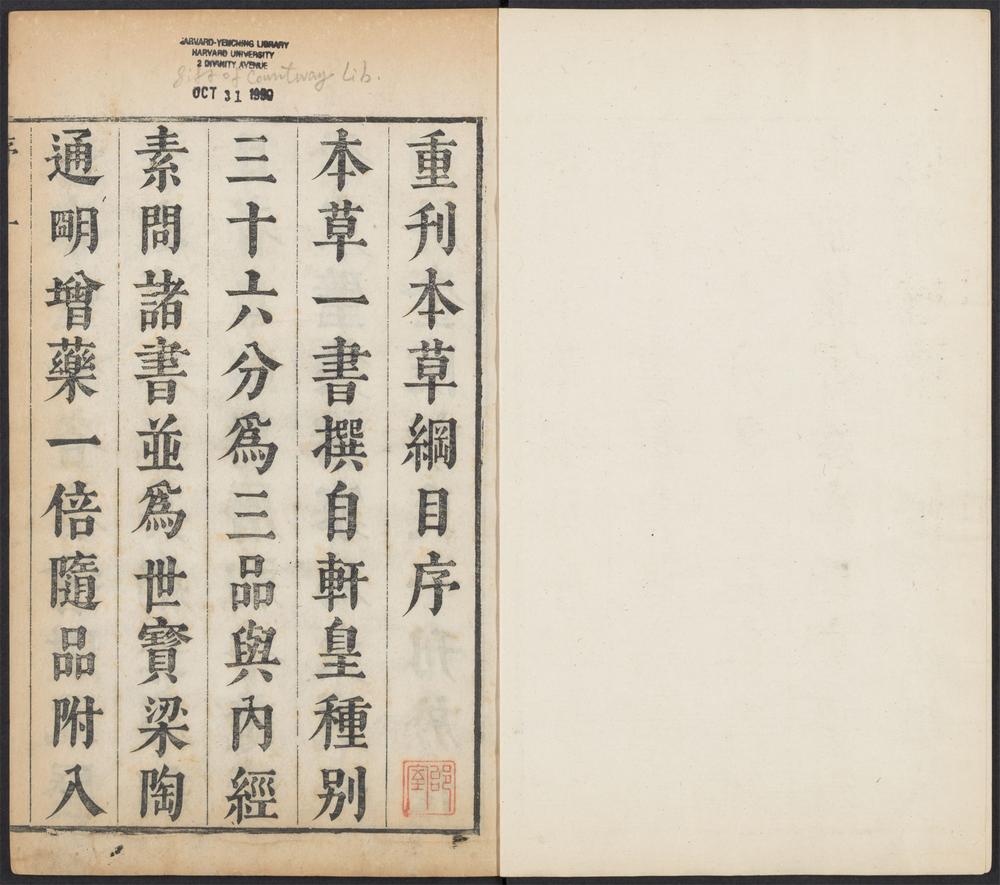 HARVARD-YENCHING LIBRARY
HARVARD UNIVERSITY
2 DIVINITY AVENUE
Gift of Countway Lib.
OCT 31 1990
重刊本草綱目序
本草一書撰自軒皇種別
三十六分爲三品與內經
素問諸書並爲世寶梁陶
通明增藥一倍隨品附入
序 一